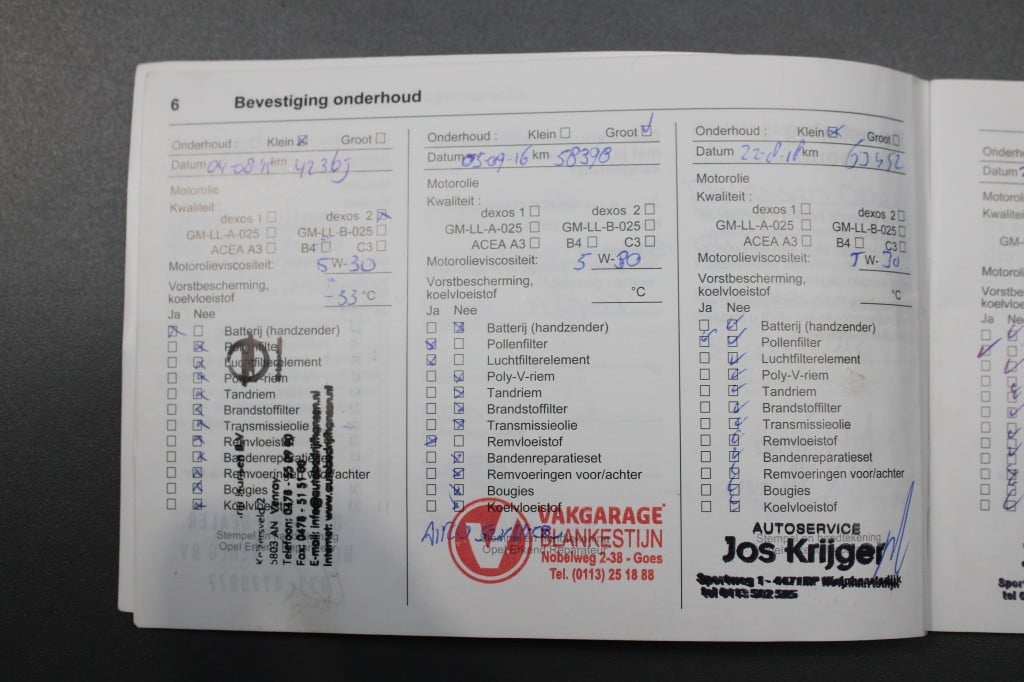 6 Bevestiging onderhoud
Onderhoud : Klein Groot
Datum km 42369
Motorolie
Kwaliteit :
dexos 1 dexos 2
GM-LL-A-025 GM-LL-B-025
ACEA A3 B4 C3
Motorolieviscositeit: 5 W-30
Vorstbescherming,
koelvloeistof -33 °C
Ja Nee
Batterij (handzender)
Luchtfilterelement
Poly-V-riem
Tandriem
Brandstoffilter
Transmissieolie
Remvloeistof
Bandenreparatieset
Remvoeringen voor/achter
Bougies
5803 AN Venray
Telefoon: 0478 -
Fax: 0478 - 51 51 00
E-mail:
Internet:
Onderhoud : Klein Groot
Datum 05-09-16 km 58398
Motorolie
Kwaliteit :
dexos 1 dexos 2
GM-LL-A-025 GM-LL-B-025
ACEA A3 B4 C3
Motorolieviscositeit: 5 W-30
Vorstbescherming,
koelvloeistof °C
Ja Nee
Batterij (handzender)
Pollenfilter
Luchtfilterelement
Poly-V-riem
Tandriem
Brandstoffilter
Transmissieolie
Remvloeistof
Bandenreparatieset
Remvoeringen voor/achter
Bougies
Koelvloeistof
Airco
VAKGARAGE
BLANKESTIJN
Opel Erkend Reparateur
Nobelweg 2-38 - Goes
Tel. (0113) 25 18 88
Onderhoud : Klein Groot
Datum 22-8-18 km 63452
Motorolie
Kwaliteit :
dexos 1 dexos 2
GM-LL-A-025 GM-LL-B-025
ACEA A3 B4 C3
Motorolieviscositeit: 5 W-30
Vorstbescherming,
koelvloeistof °C
Ja Nee
Batterij (handzender)
Pollenfilter
Luchtfilterelement
Poly-V-riem
Tandriem
Brandstoffilter
Transmissieolie
Remvloeistof
Bandenreparatieset
Remvoeringen voor/achter
Bougies
Koelvloeistof
Stempel en handtekening
AUTOSERVICE
Jos Krijger
Sportweg 1 -